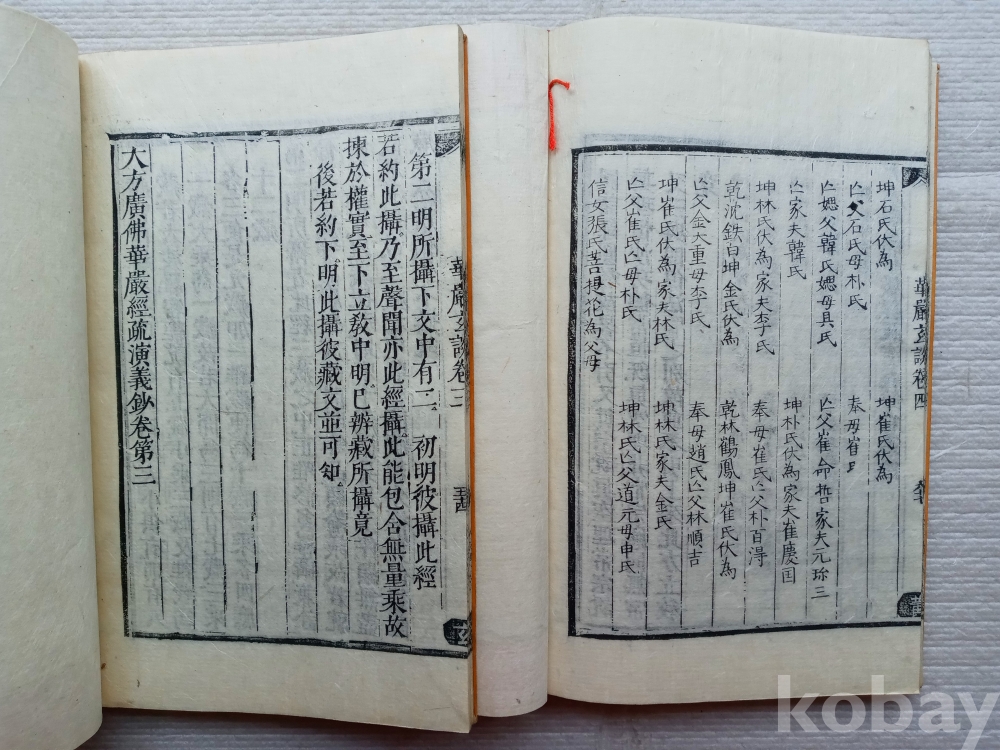 華嚴玄談卷四
坤石氏伏為　坤崔氏伏為
亡父石氏母朴氏　奉母崔
亡媤父韓氏媤母具氏　亡父崔命哲家夫元珎三
亡家夫韓氏　坤朴氏伏為家夫崔慶囯
坤林氏伏為家夫李氏　奉母崔氏亡父朴百淂
乾沈鉄白坤金氏伏為　乾林鶴鳳坤崔氏伏為
亡父金大重母李氏　奉母趙氏亡父林順吉
坤崔氏伏為家夫林氏　坤林氏家夫金氏
亡父崔氏亡母朴氏　坤林氏亡父道元母申氏
信女張氏菩提花為父母
華嚴玄談卷三
第二明所攝下文中有二　初明彼攝此經
若約此攝乃至聲聞亦此經攝此能包含無量乘故
揀於權實至下立敎中明已辨藏所攝竟
後若約下明此攝彼藏文並可知
大方廣佛華嚴經疏演義鈔卷第三
kobay